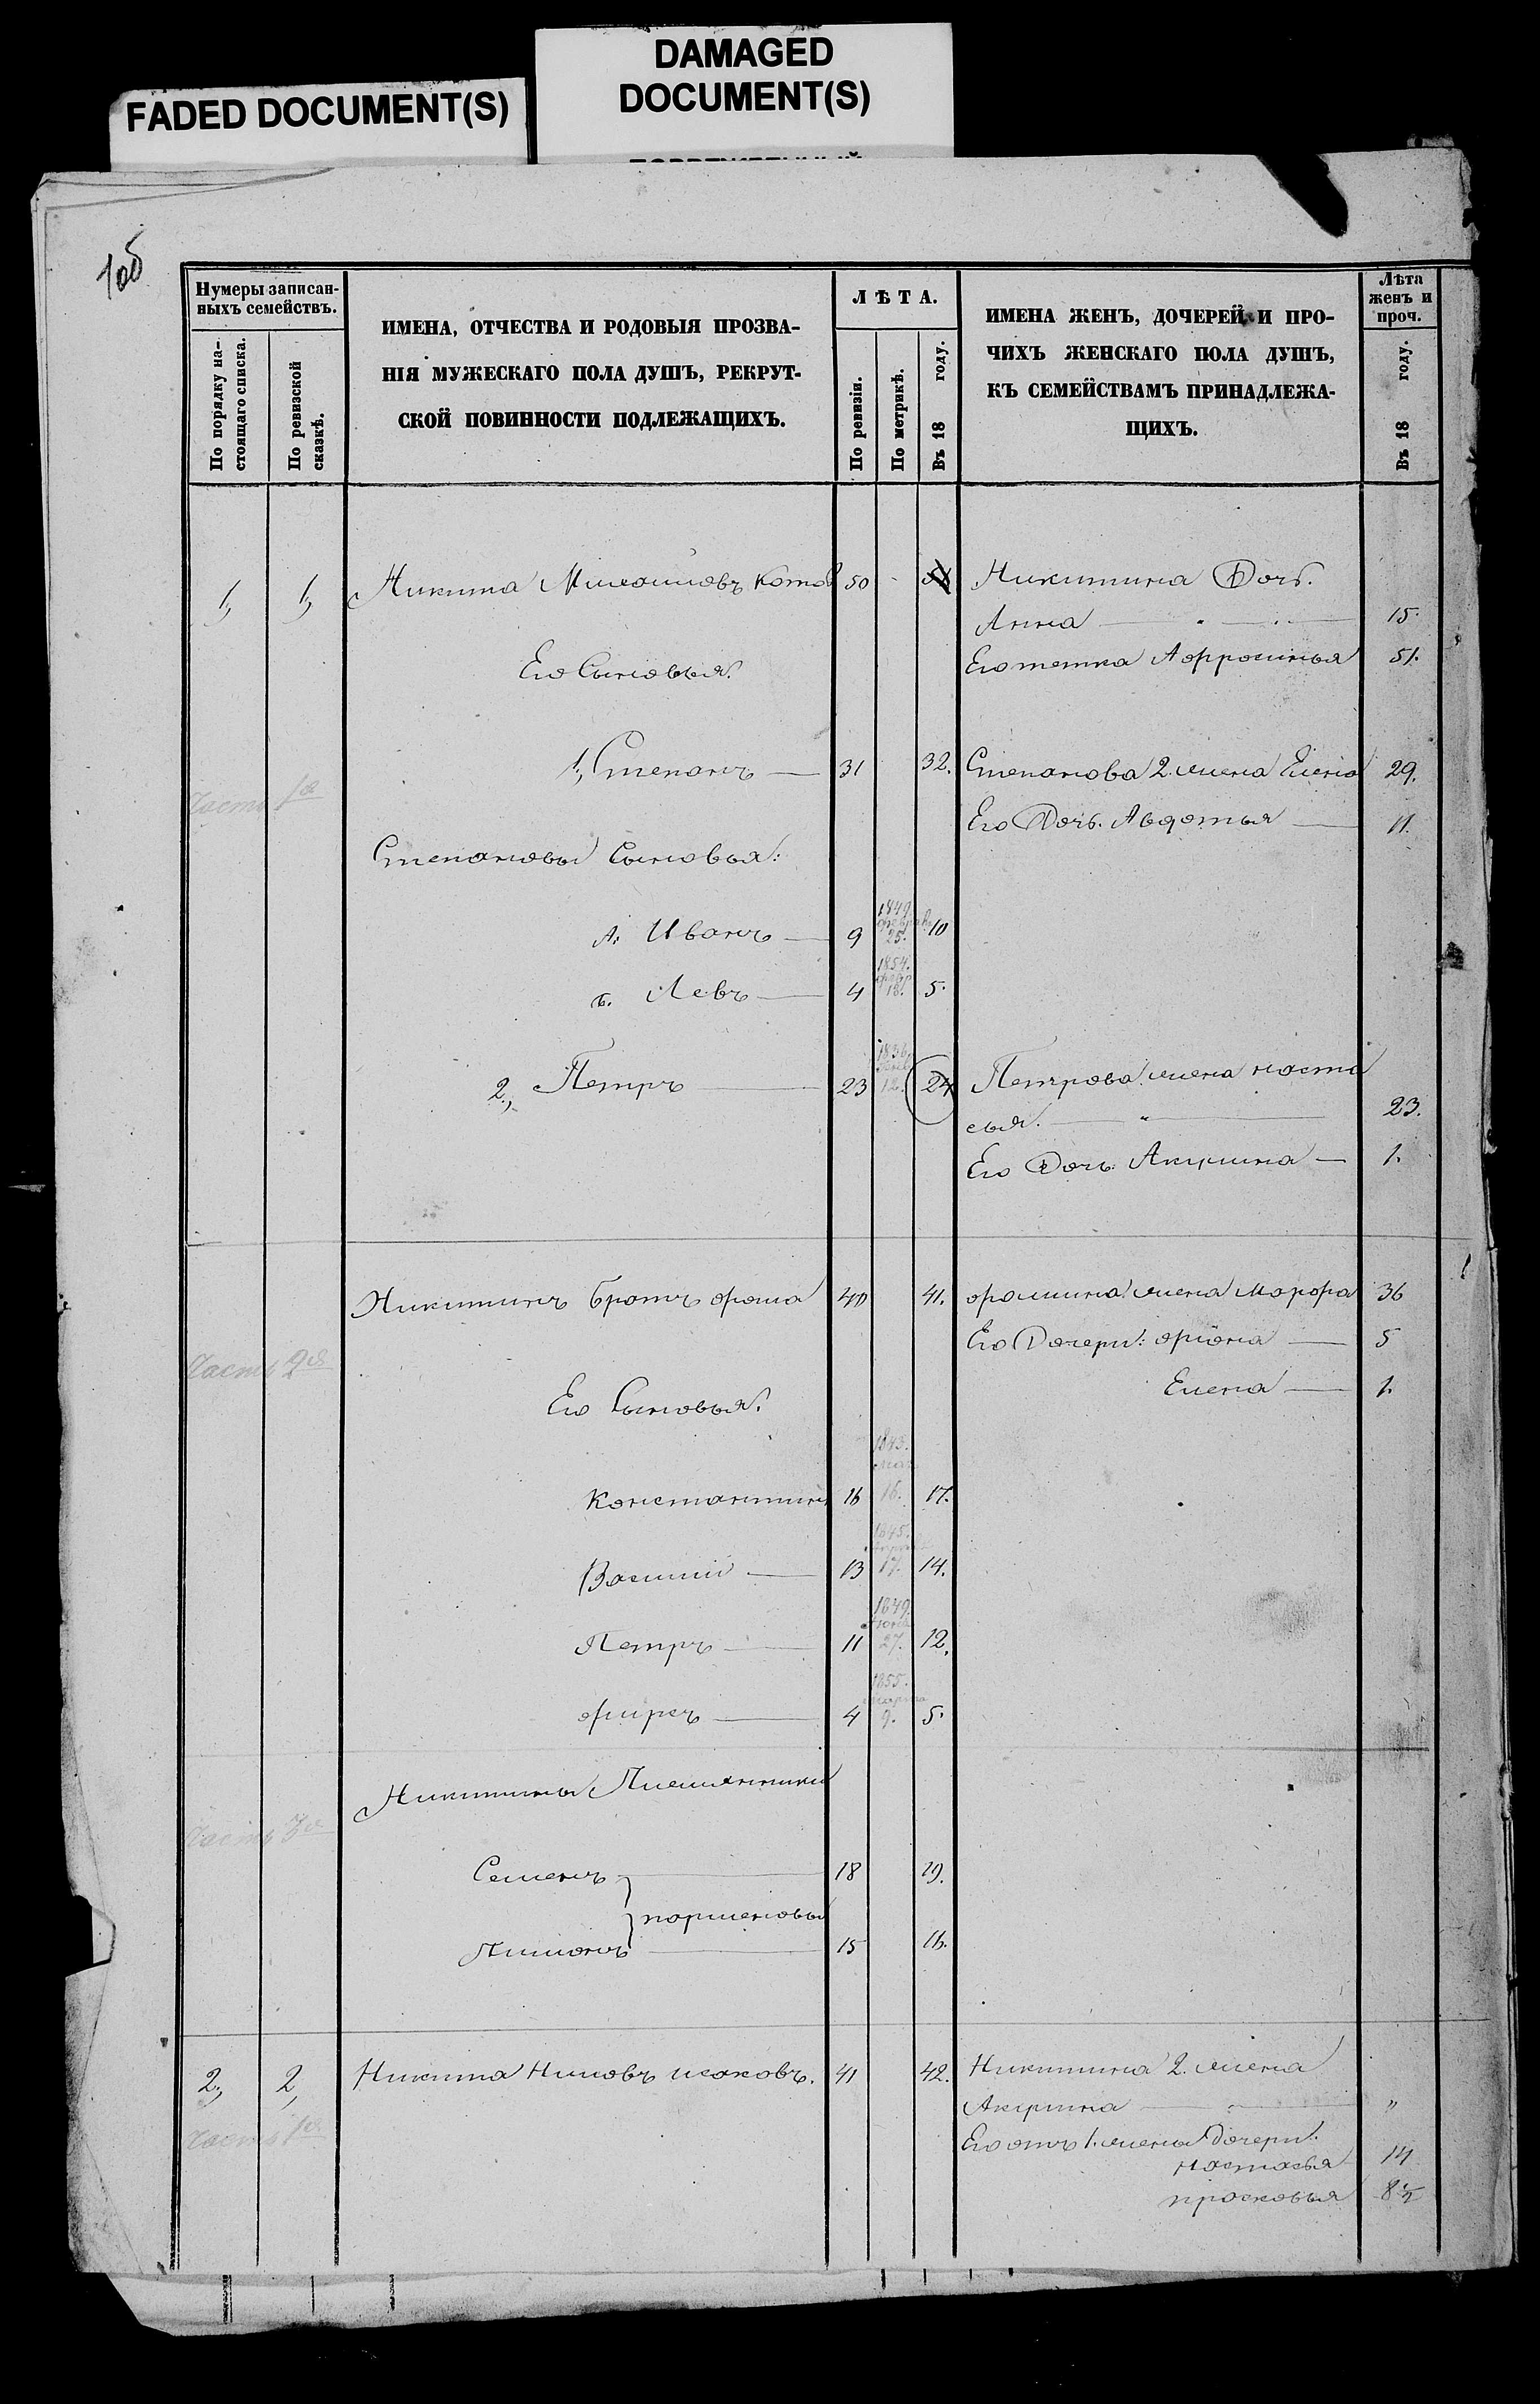 FADED DOCUMENT(S)
DAMAGED
DOCUMENT(S)
Нумеры записан-
ныхъ семействъ.
По порядку на-
стоящаго списка.
По ревизской
сказкѣ.
ИМЕНА, ОТЧЕСТВА И РОДОВЫЯ ПРОЗВА-
НІЯ МУЖЕСКАГО ПОЛА ДУШЪ, РЕКРУТ-
СКОЙ ПОВИННОСТИ ПОДЛЕЖАЩИХЪ.
ЛѢТА.
По ревизіи.
По метрикѣ.
Въ 18 году.
ИМЕНА ЖЕНЪ, ДОЧЕРЕЙ И ПРО-
ЧИХЪ ЖЕНСКАГО ПОЛА ДУШЪ,
КЪ СЕМЕЙСТВАМЪ ПРИНАДЛЕЖА-
ЩИХЪ.
Лѣта
женъ и
проч.
Въ 18 году.
1, 1, Никита Михайловъ Котов 50 - 51 Никитина Дочь.
Анна 15.
Его Сыновья: Его тетка Афросинья 51.
1, Степанъ 31 32. Степанова 2. жена Елена 29.
Часть 1я
Его Дочь. Авдотья 11.
Степановы Сыновья:
1849.
А. Иванъ 9 25. 10
1854.
б. Левъ 4 18. 5.
1836.
2., Петръ 23 12. 24 Петрова жена наста
сья. 23.
Его Дочь Акулина 1.
Никитинъ братъ фома 40 41. фомина жена Марфа 36
Его Дочери: 5
Часть 2я
Елена 1.
Его Сыновья:
1843.
Мая
Константинъ 16 16. 17.
1845.
Василий 13 17. 14.
1849.
Петръ 11 27. 12.
1855.
Марта
фирсъ 4 9. 5.
Никитины Племянники
Часть 3я
Семенъ 18 19.
парменовы
Пименъ 15 16.
2, 2, Никита Ниловъ исаковъ. 41 42. Никитина 2. жена
Акулина "
Часть 1я
Его отъ 1. жены Дочери:
настасья 14
просковья 8½